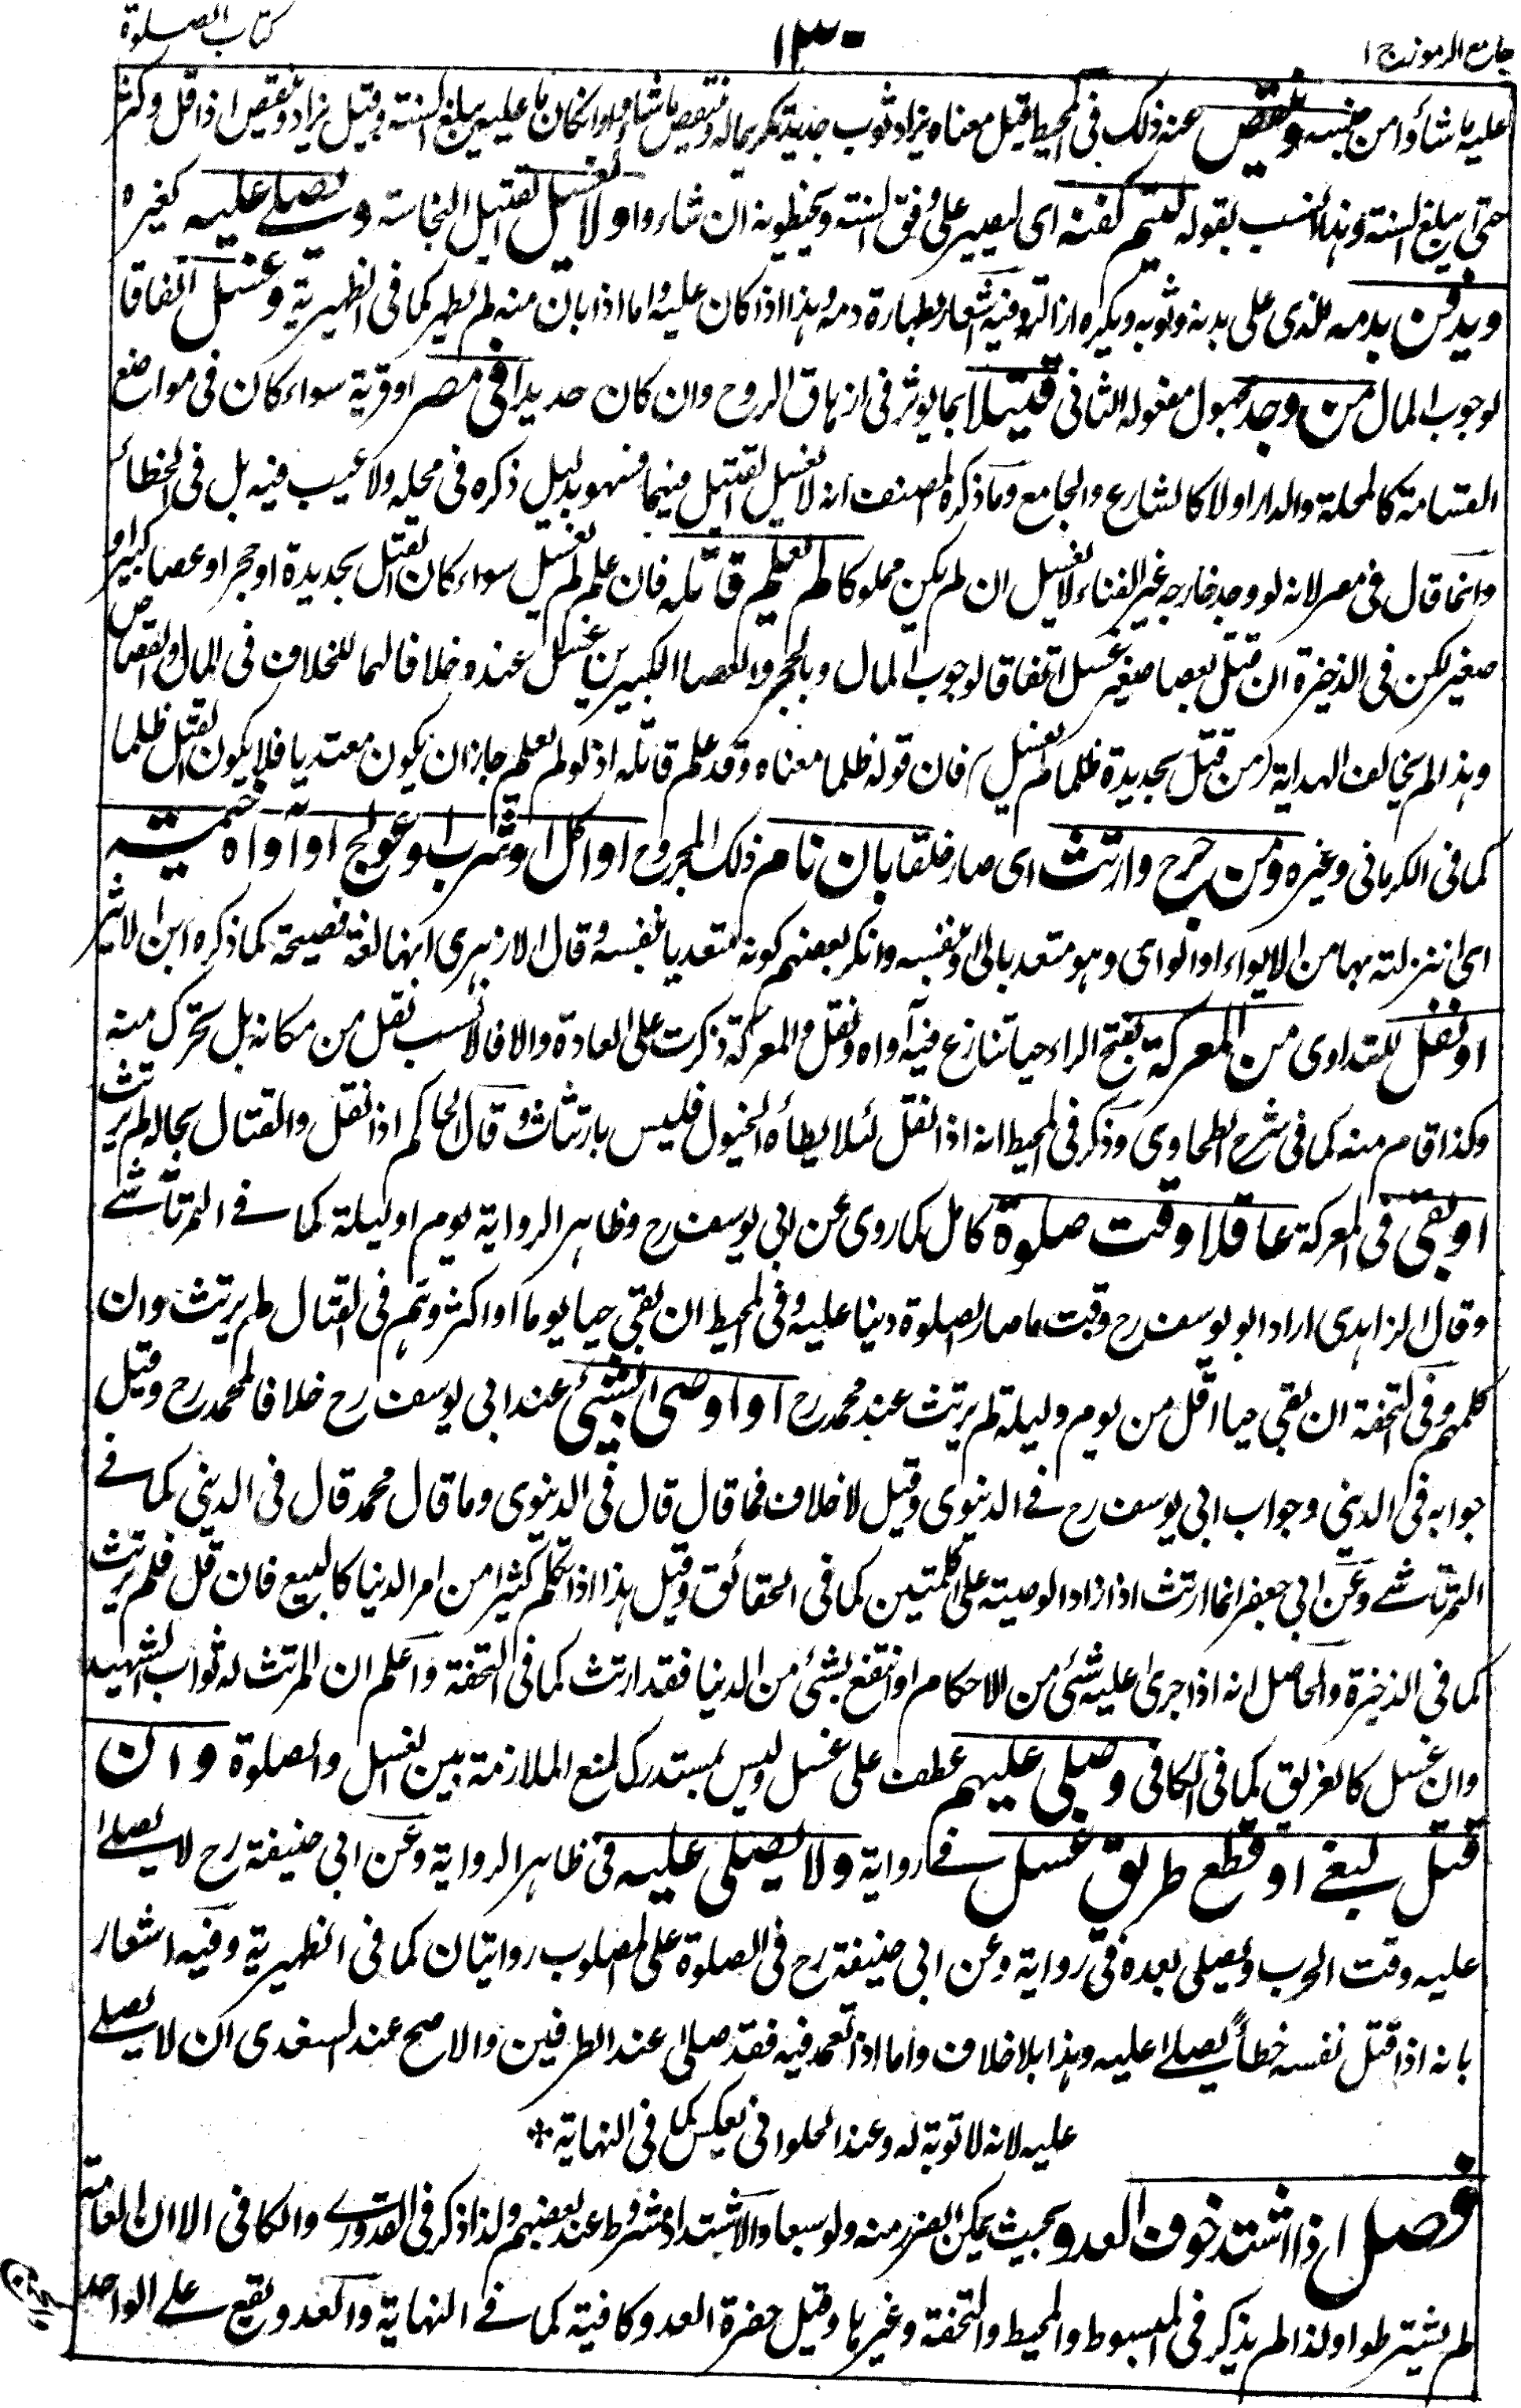 جامع الرموز ج ١
١٣٠
كتاب الصلوة
عليه ما شاؤا من جنسه وينقص عنه ذلك في المحيط قيل معناه يزاد ثوب جديد تكريما له وينقص ما شاؤا وان كان ما عليه يبلغ السنة وقيل يزاد وينقص اذا قل وكثر
حتى يبلغ السنة وهذا انسب بقوله ليتم كفنه اى ليصير على وفق السنة ويحنطونه ان شاءوا ولا يغسل القتيل النجاسة ويصلى عليه كغيره
ويدفن بدمه الذى على بدنه وثوبه ويكره ازالته وفيه اشعار بطهارة دمه وهذا اذا كان عليه واما اذا بان منه لم يطهر كما في الظهيرية وغسل اتفاقا
لوجوب المال من وجد مجهول مفعوله الثاني قتيلا بما يوثر فى ازهاق الروح وان كان حديدا في مصر او قرية سواء كان فى مواضع
القسامة كالمحلة والدار اولا كالشارع والجامع وما ذكره المصنف انه لا يغسل القتيل فيهما فسهو بدليل ذكره فى محله ولا عيب فيه بل فى الخطاء
وانما قال فى مصر لانه لو وجد خارجه غير الفناء لا يغسل ان لم يكن مملوكا لم يعلم قاتله فان علم لم يغسل سواء كان القتل بحديدة او حجر او عصا كبير او
صغير لكن فى الذخيرة ان قتل بعصا صغير غسل اتفاقا لوجوب المال وبالحجر والعصا الكبيرين غسل عنده خلافا لهما للخلاف فى المال والقصاص
وهذا لم يخالف الهداية من قتل بحديدة ظلما لم يغسل فان قوله ظلما معناه وقد علم قاتله اذ لو لم يعلم جاز ان يكون معتديا فلا يكون القتل ظلما
كما فى الكرماني وغيره ومن جرح وارتث اى صار خلقا بان نام ذلك المجروح او اكل او شرب او عولج او آواه خيمة
اى انزلته بها من الايواء او الواى وهو متعد بالى وبنفسه وانكر بعضهم كونه متعديا بنفسه وقال الازهرى انها لغة فصيحة كما ذكره ابن الاثير
او نقل للتداوى من المعركة بفتح الراء حيا تنازع فيه آواه ونقل والمعركة ذكرت على العادة والا فالانسب نقل من مكانه بل تحرك منه
وكذا قام منه كما فى شرح الطحاوى وذكر فى المحيط انه اذا نقل لئلا يطأه الخيول فليس بارتثاث وقال الحاكم اذا نقل والقتال بحاله لم يرتث
او بقى فى المعركة عاقلا وقت صلوة كامل كما روى عن ابي يوسف رح وظاهر الرواية يوم او ليلة كما فى التمرتاشى
وقال الزاهدى اراد ابو يوسف رح وقت ما صار الصلوة دينا عليه وفى المحيط ان بقى حيا يوما او اكثر وهم فى القتال لم يرتث وان
كلمهم وفى التحفة ان بقى حيا اقل من يوم وليلة لم يرتث عند محمد رح او اوصى بشئ عند ابى يوسف رح خلافا لمحمد رح وقيل
جوابه فى الدينى وجواب ابى يوسف رح فى الدنيوى وقيل لا خلاف فما قال قال فى الدنيوى وما قال محمد قال فى الدينى كما فى
التمرتاشى وعن ابى جعفر انما ارتث اذا زاد الوصية على كلمتين كما فى الحقائق وقيل هذا اذا تكلم كثيرا من امر الدنيا كالبيع فان قل فلم يرتث
كما فى الذخيرة والحاصل انه اذا جرى عليه شئ من الاحكام او انتفع بشئ من الدنيا فقد ارتث كما فى التحفة واعلم ان المرتث له ثواب الشهيد
وان غسل كالغريق كما فى الكافى وصلى عليهم عطف على غسل وليس بمستدرك لمنع الملازمة بين الغسل والصلوة وان
قتل لبغى او قطع طريق غسل فى رواية ولا يصلى عليه فى ظاهر الرواية وعن ابى حنيفة رح لا يصلى
عليه وقت الحرب ويصلى بعده فى رواية وعن ابى حنيفة رح فى الصلوة على المصلوب روايتان كما فى الظهيرية وفيه اشعار
بانه اذا قتل نفسه خطأ يصلى عليه وهذا بلا خلاف واما اذا تعمد فيه فقد صلى عند الطرفين والاصح عند السغدى ان لا يصلى
عليه لانه لا توبة له وعند الحلوانى بعكس كما فى النهاية *
فصل اذا اشتد خوف العدو بحيث يمكن الضرر منه ولو سبعا والاشتداد مشروط عند بعضهم ولذا ذكر فى القدورى والكافى الا ان العامة
لم يشترطوا ولذا لم يذكر فى المبسوط والمحيط والتحفة وغيرها وقيل حضرة العدو كافية كما فى النهاية والعدو يقع على الواحد